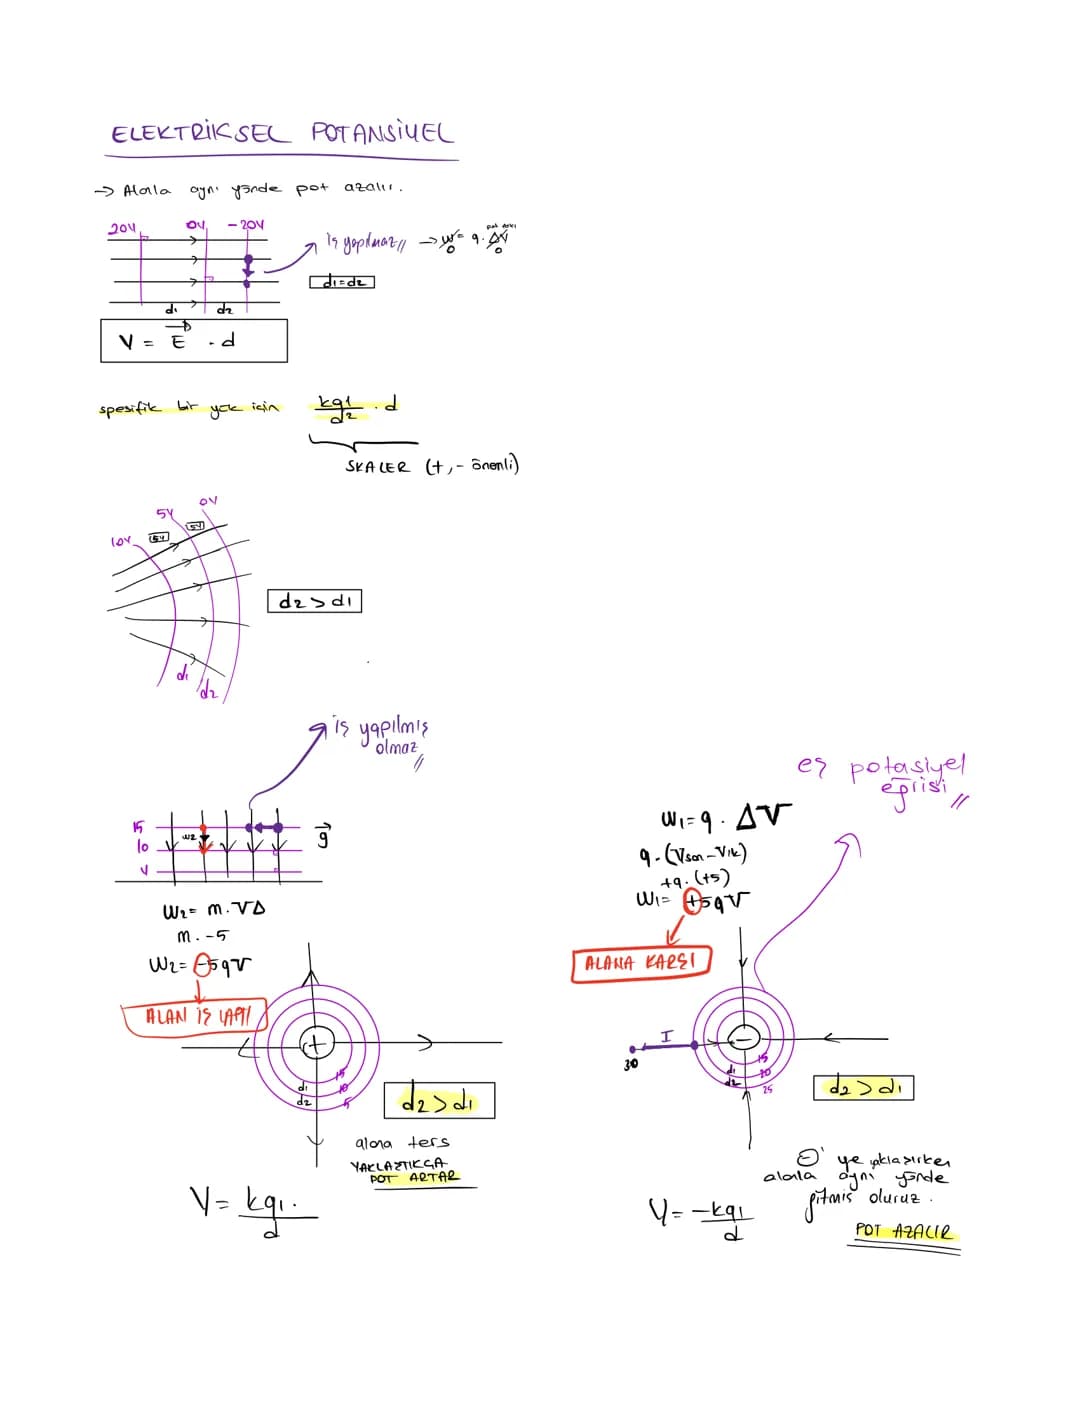 ELEKTRİKSEL POTANSİYEL
→ Alanla aynı yönde pot azalır.
20V 0V -20V
iş yapılmaz // → W = q. ΔV
0 0
d1=d2
d1 d2
V = E . d
spesifik bir yük için kq1/d2 . d
SKALER (+,- önemli)
10V 5V 0V
5V 5V
d2 > d1
d1 d2
iş yapılmış
olmaz //
15
10
V
W2
g
W2= m. VΔ
m. -5
W2= -5qV
ALAN İŞ YAPTI
+
15
10
5
d1
d2
d2 > d1
alana ters
YAKLAŞTIKÇA
POT ARTAR
V= kq1.
d
eş potasiyel
eğrisi //
W1= q . ΔV
q.(Vson-Vilk)
+q.(+5)
W1= +5qV
ALANA KARŞI
30
I
-
15
20
25
d1
d2
d2 > d1
⊖' ye yaklaşırken
alanla aynı yönde
gitmiş oluruz.
POT AZALIR
V= -kq1
d